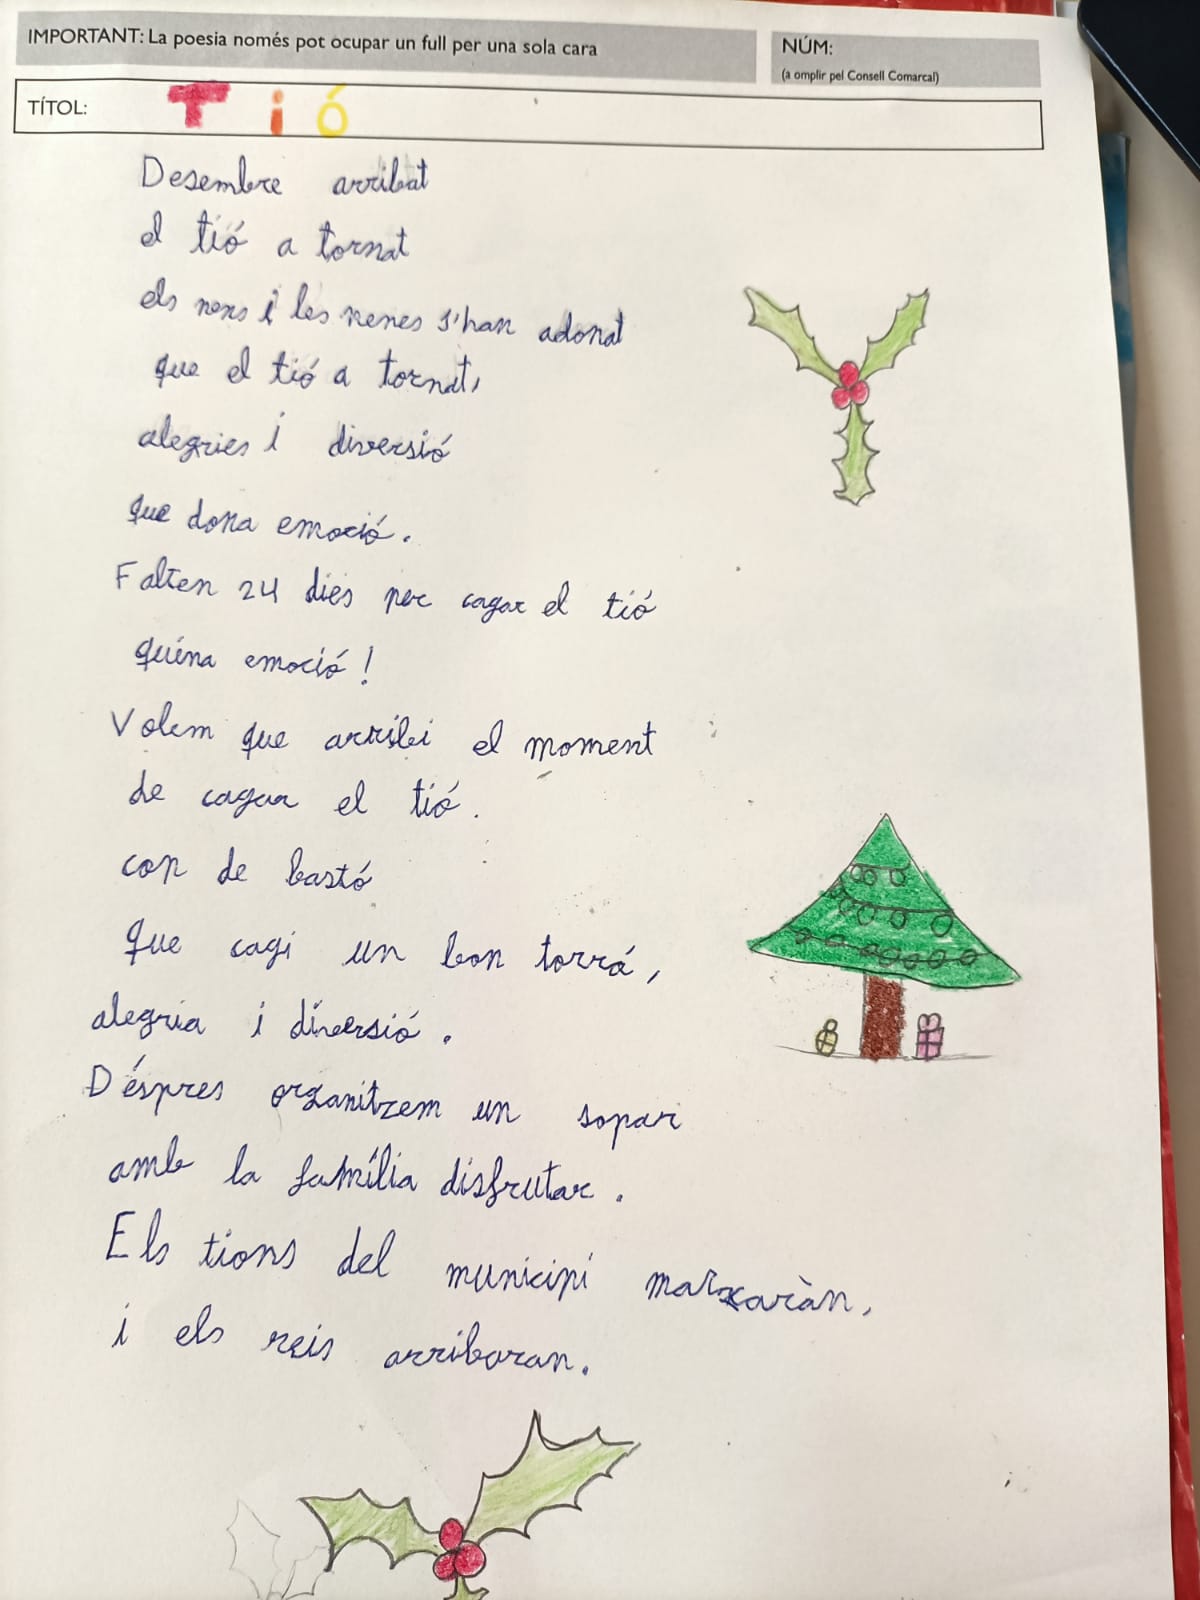 IMPORTANT: La poesia només pot ocupar un full per una sola cara
NÚM:
(a omplir pel Consell Comarcal)
TÍTOL: Tió
Desembre arribat
el tió a tornat
els nens i les nenes s'han adonat
que el tió a tornat,
alegries i diversió
que dona emoció.
Falten 24 dies per cagar el tió
quina emoció!
Volem que arribi el moment
de cagar el tió.
cop de bastó
que cagi un bon torró,
alegria i diversió.
Déspres organitzem un sopar
amb la família disfrutar.
Els tions del municipi marxaràn,
i els reis arribaran.